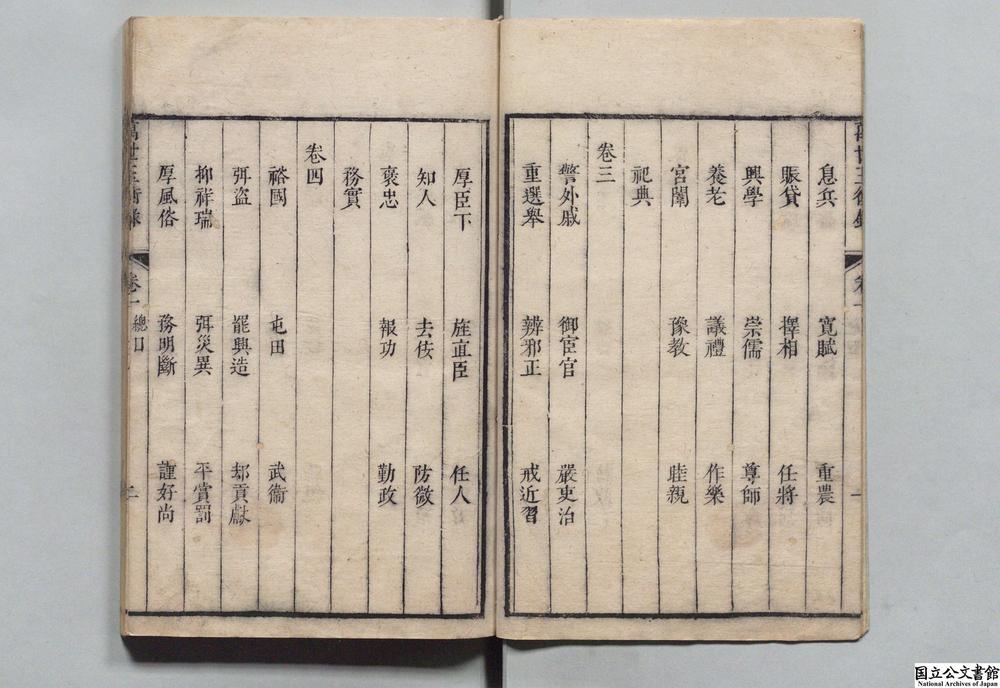 息兵 寬賦 重農
賑貸 擇相 任將
興學 崇儒 尊師
養老 議禮 作樂
宮闈 豫教 睦親
祀典
卷三
警外戚 御宦官 嚴吏治
重選舉 辨邪正 戒近習
厚臣下 旌直臣 任人
知人 去佞 防微
褒忠 報功 勤政
務實
卷四
裕國 屯田 武衛
弭盜 罷興造 却貢獻
抑祥瑞 弭災異 平賞罰
厚風俗 務明斷 謹好尚
卷一 總目 二
国立公文書館
National Archives of Japan